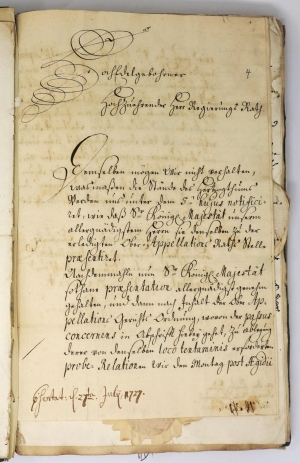 Hochedelgebohrner
4
Hochzuehrender Herr Regierungs Rath
Demselben mögen Wir nicht verhalten,
wasmaßen die Stände des Herzogthums
Verden uns unter dem 5. hujus notifici-
ret, wie daß Sr. Königl. Majestät unserm
allergnädigsten Herrn sie denselben zu der
erledigten Ober-Appellations-Raths Stelle
præsentiret.
Nachdemmahln nun Sr. Königl. Majestät
sothane præsentation allergnädigst genehm
gehalten, und dann nach Inhalt der Ober-Ap-
pellations Gerichts Ordnung, wovon der passus
concernens in Abschrift hiebey gehet, zu
deren von demselben loco tentaminis erforderten
probe-Relationen wir den Montag post Ægidii
July. 1727.